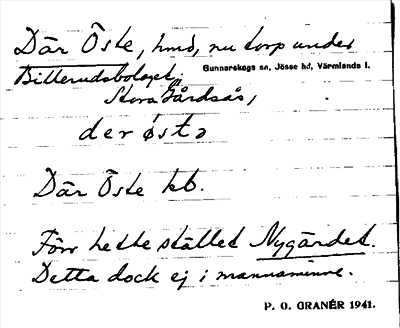 Där Öste, hmd, nu torp under
Billerudsbolaget; Gunnarskogs sn, Jösse hd, Värmlands l.
Stora Gårdsås,
der östə
Där Öste kb.
Förr hette stället Nygärdet.
Detta dock ej i mannaminne.
P. O. GRANÉR 1941.